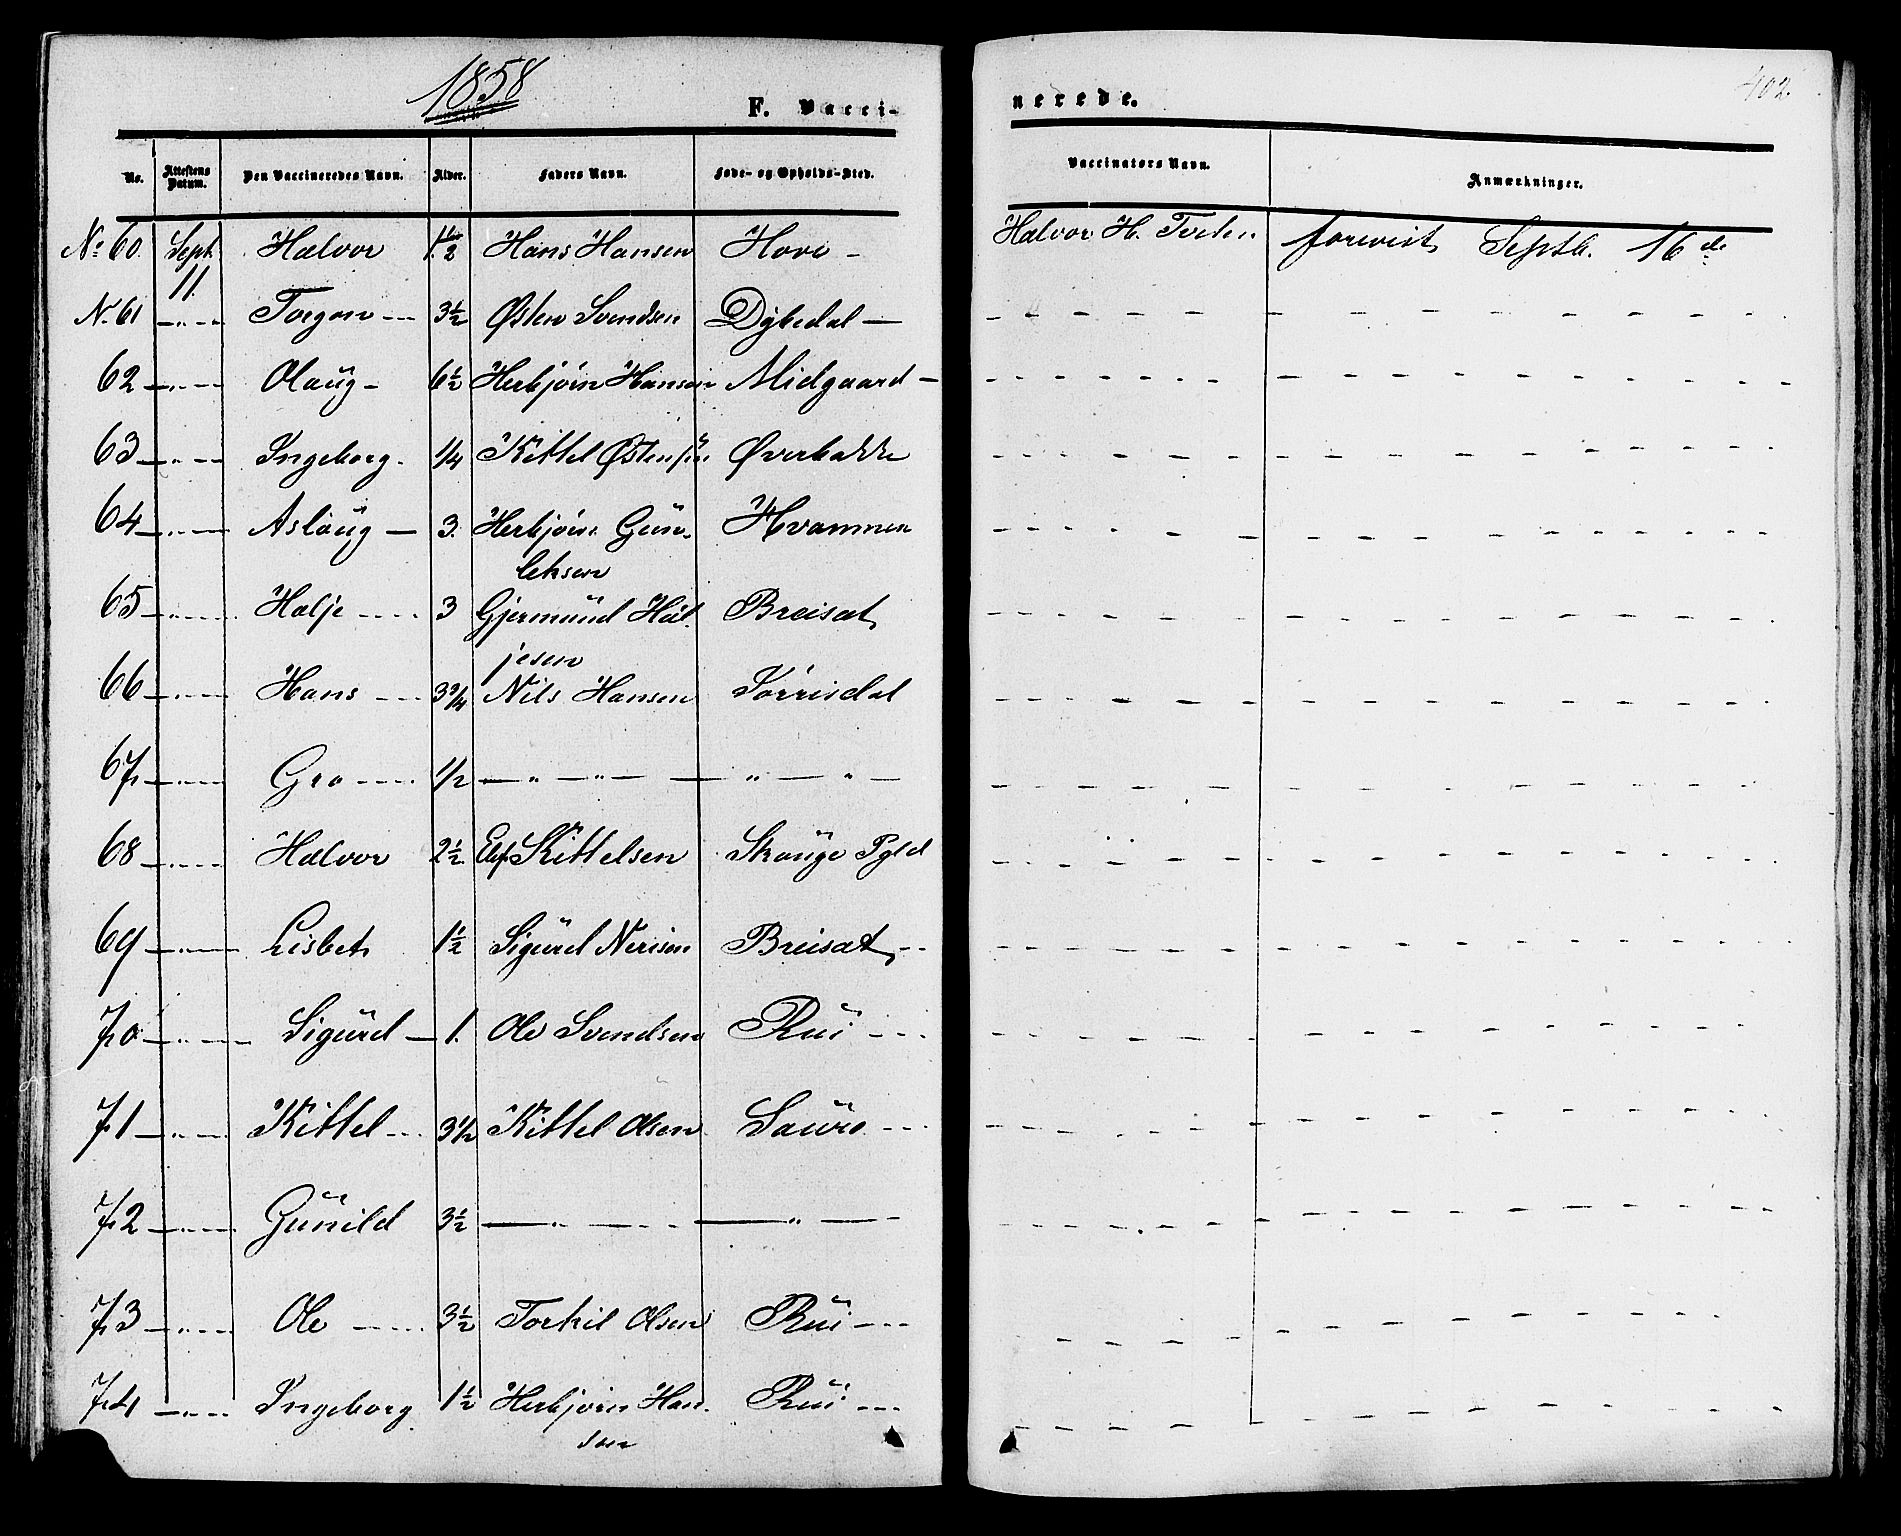 1858
F. Vacci-
nerede.
402
No.
Attestens Datum.
Den Vaccineredes Navn.
Alder.
Faders Navn.
Føde- og Opholds-Sted.
Vaccinators Navn.
Anmærkninger.
No 60 Sept 11. Halvor 1½ Hans Hansen Hove - Halvor H. forevist Septb. 16 de
N. 61 —"— Torgon 3½ Østen Svendsen Dybedal —
62 —"— Olaug - 6½ Herbjørn Hansen Midgaard —
63 —"— Ingeborg. 1/4 Kittel Østensen Øverbakke
64 —"— Aslaug — 3. Herbjørn Gun-
leksen Hvammen
65 —"— Halje 3 Gjermund Hal-
jesen Breisat
66 —"— Hans 3 3/4 Nils Hansen Sørrisdal
67 —"— Gro 1/2 —"—"— —"—"—
68 —"— Halvor 2½ Elef Kittelsen Skauge Pgld
69 —"— Lisbet 1½ Sigurd Nerisen Breisat
70 —"— Sigurd — 1. Ole Svendsen Rui
71 —"— Kittel 3½ Kittel Olsen Saure
72 —"— Gunild 3½ —"— —"—
73 —"— Ole 3½ Torkil Olsen Rui
74 —"— Ingeborg 1½ Herbjørn Han-
sen Rui